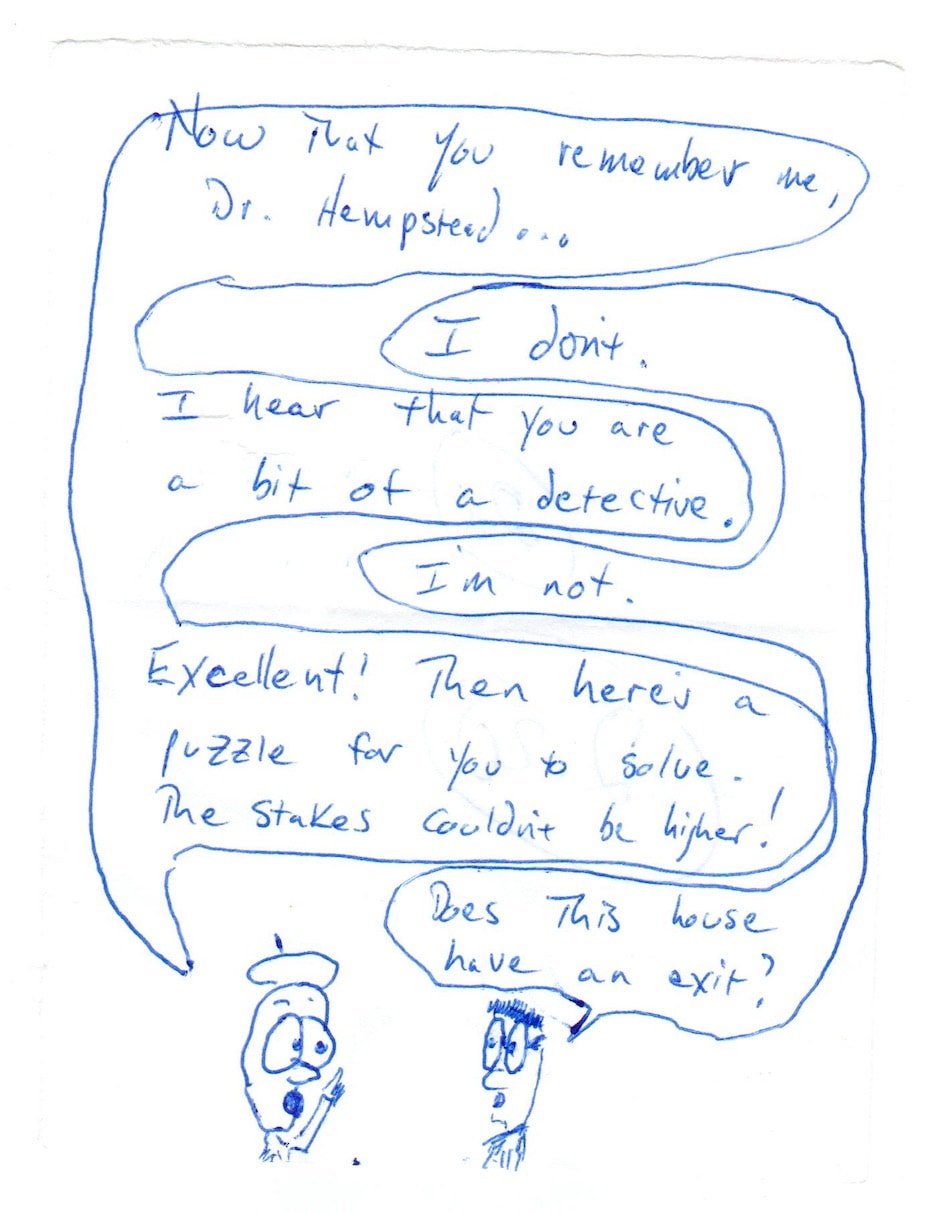 Now that you remember me,
Dr. Hempstead...
I don't.
I hear that you are
a bit of a detective.
I'm not.
Excellent! Then here's a
puzzle for you to solve.
The stakes couldn't be higher!
Does this house
have an exit?